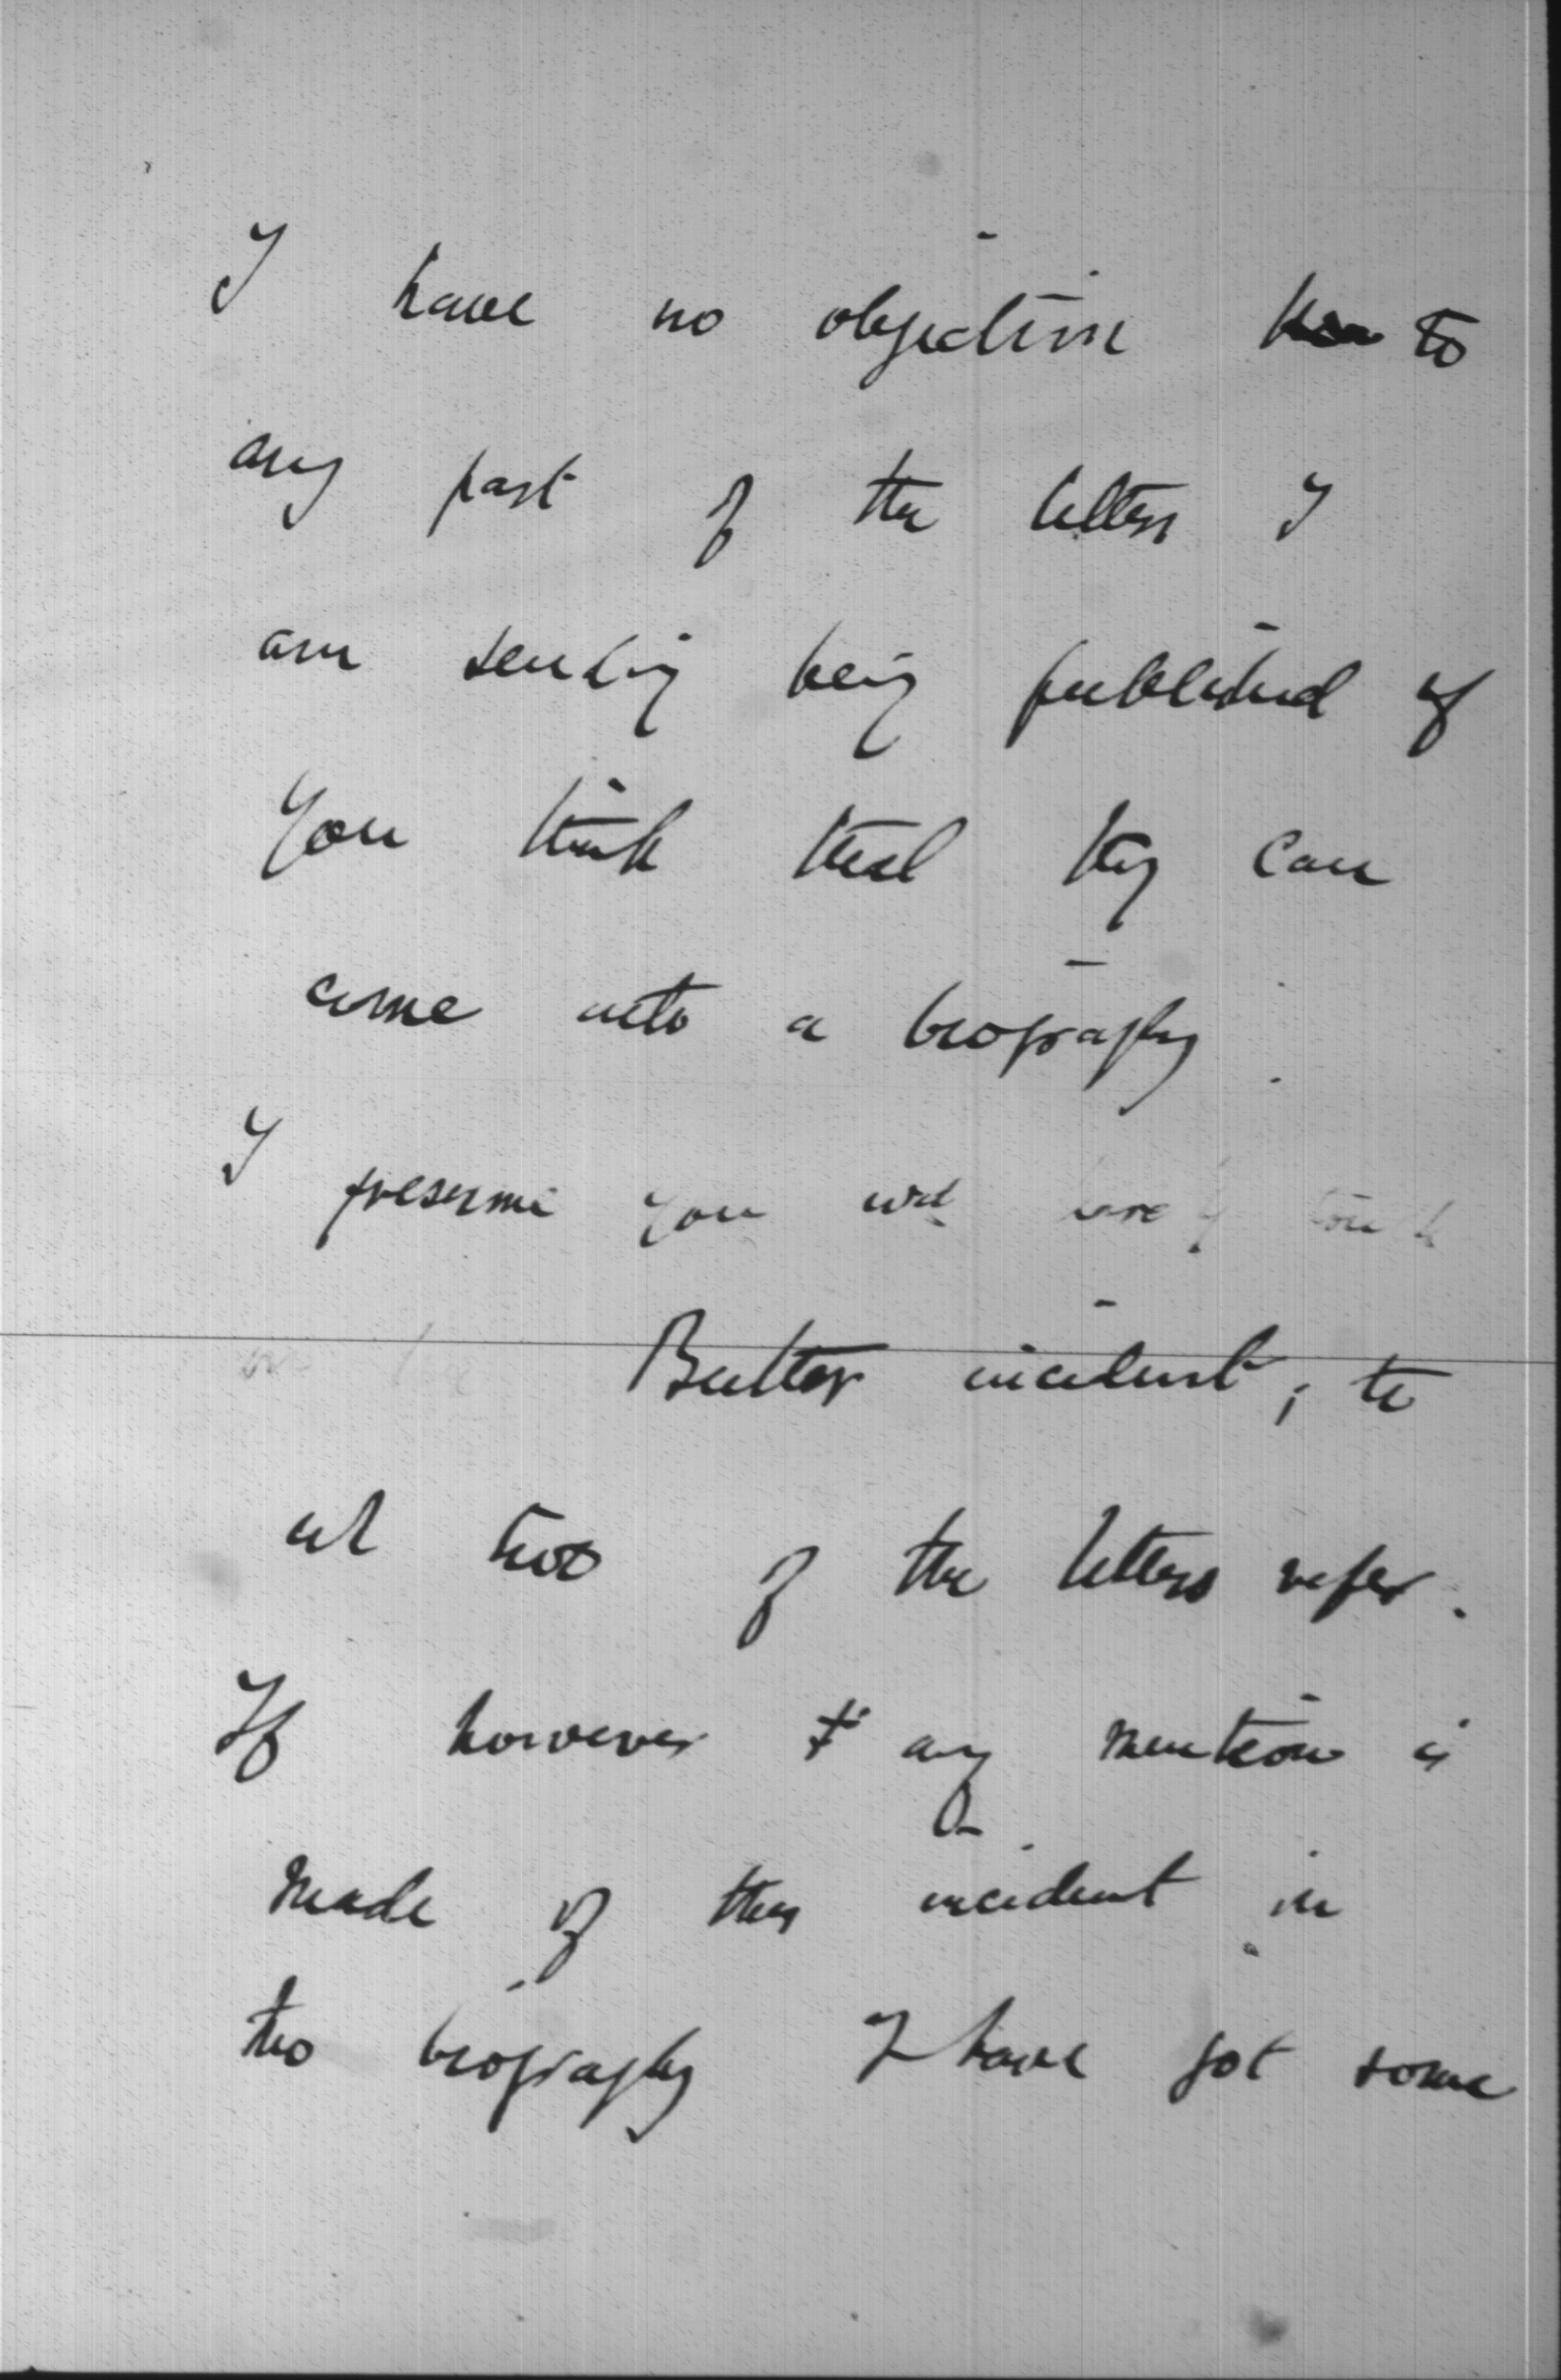 I have no objection to
any part of the letters I
am sending being published if
you think that they can
come into a biography.
I presume you wd touch
on the Butler incident, to
wh two of the letters refer.
If however any mention is
made of this incident in
the biography I have got some